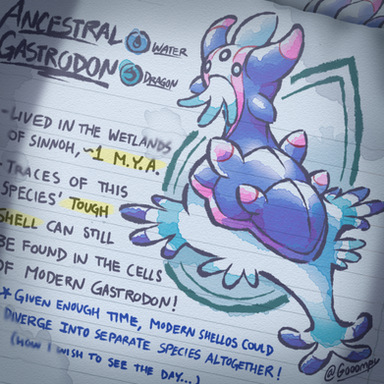 ANCESTRAL
GASTRODON
WATER
DRAGON
-LIVED IN THE WETLANDS
OF SINNOH, ~1 M.Y.A.
-TRACES OF THIS
SPECIES' TOUGH
SHELL CAN STILL
BE FOUND IN THE CELLS
OF MODERN GASTRODON!
* GIVEN ENOUGH TIME, MODERN SHELLOS COULD
DIVERGE INTO SEPARATE SPECIES ALTOGETHER!
(HOW I WISH TO SEE THE DAY...)